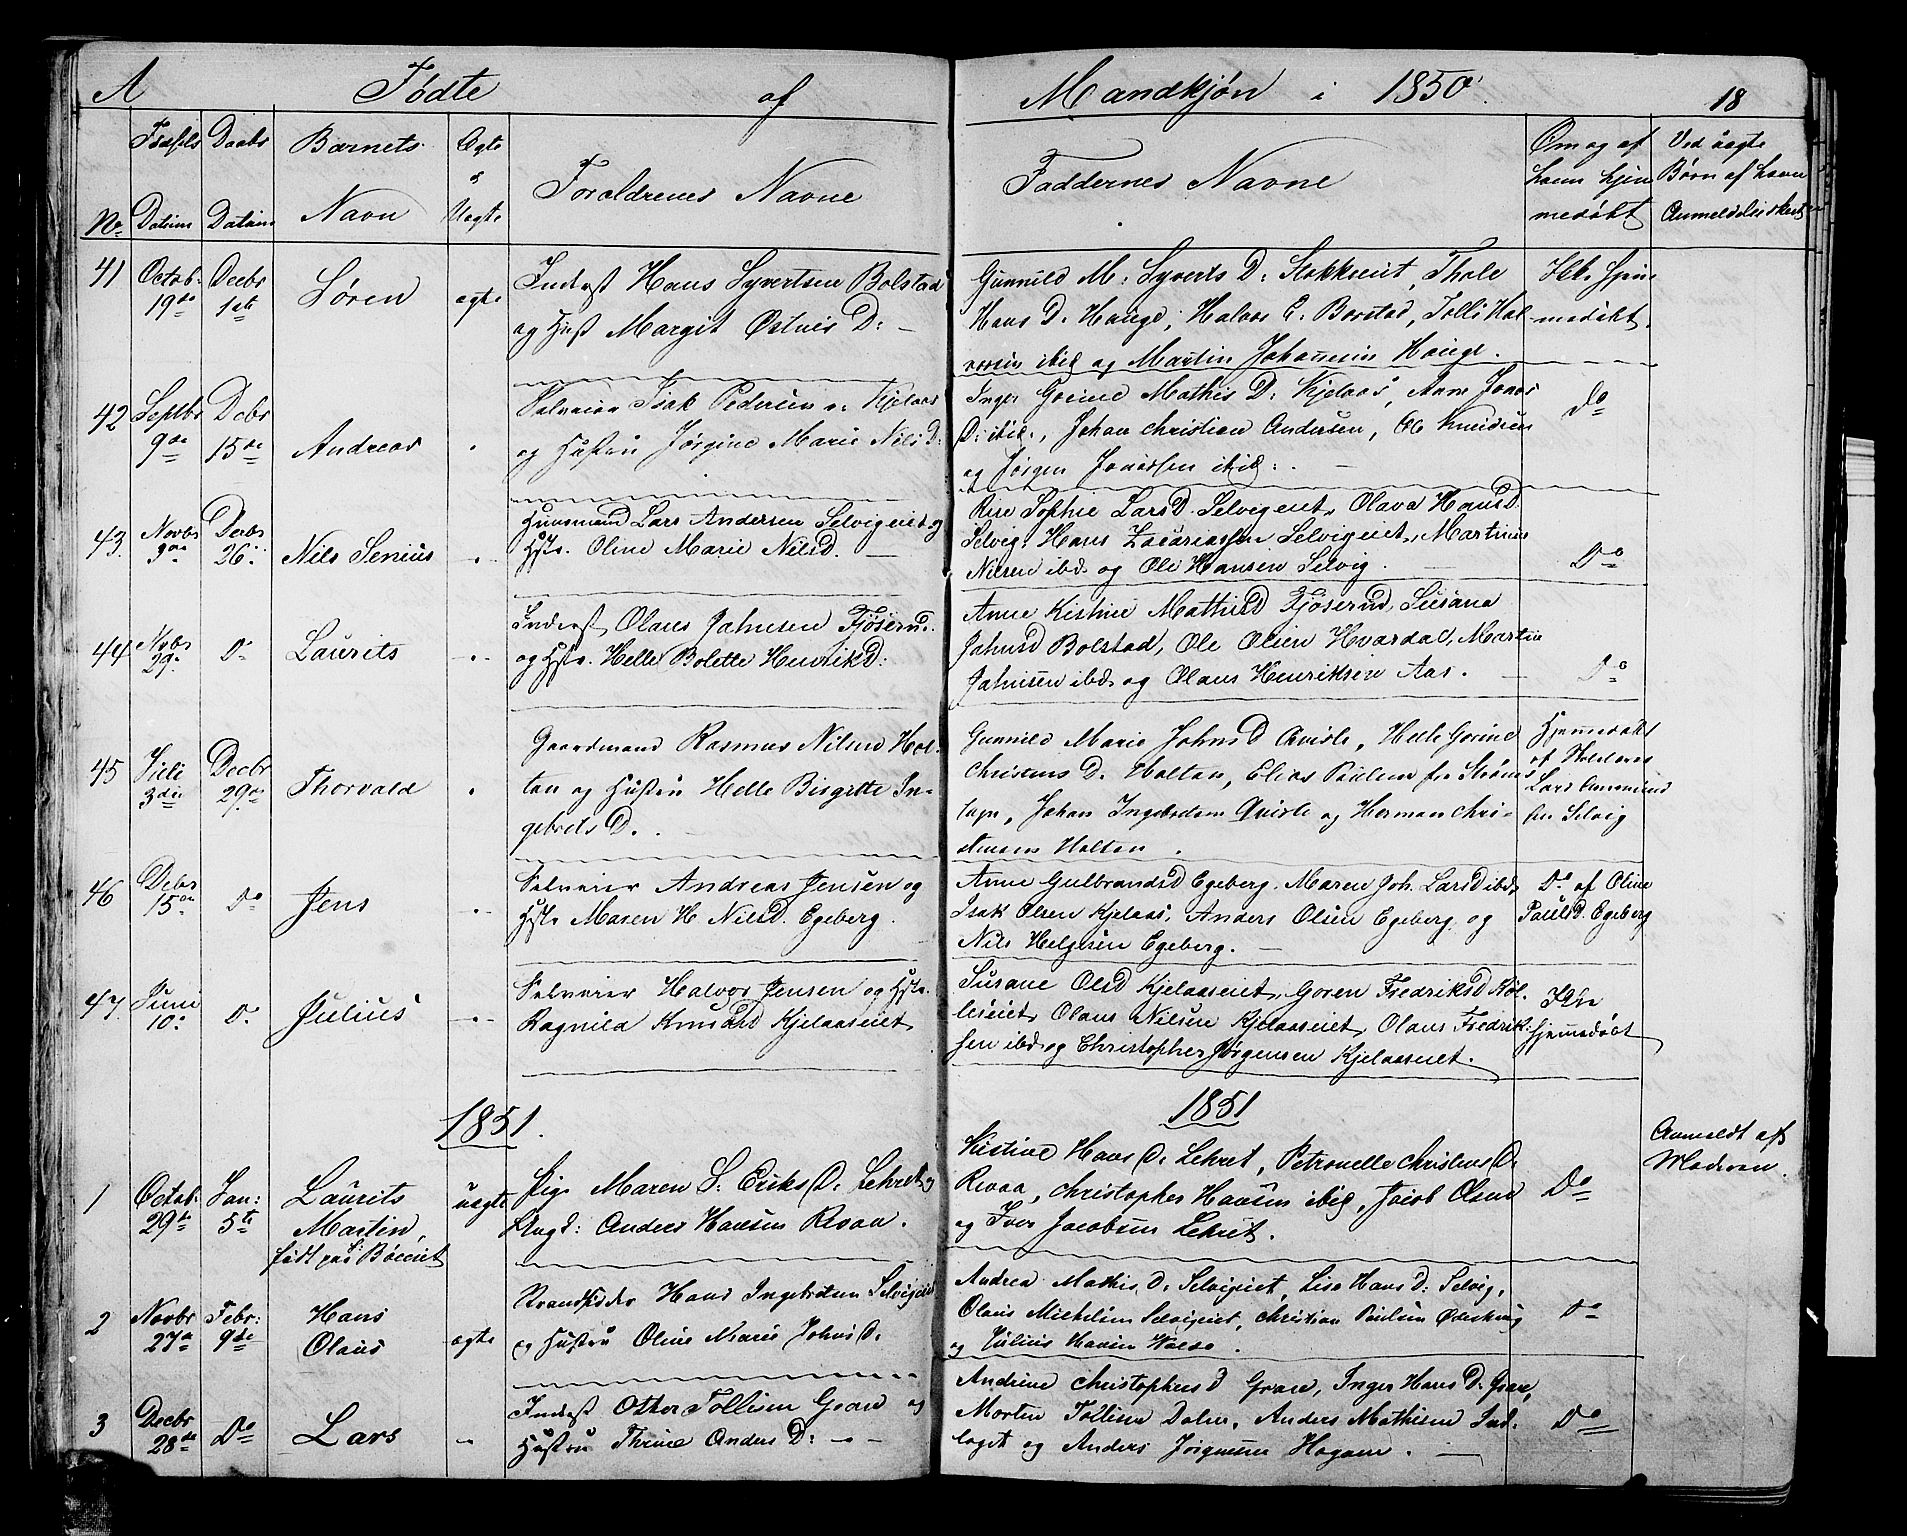 A Fødte af Mandkjøn i 1850. 18
No. Fødsels Datum Daabs Datum Barnets Navn Ægte o Uægte Forældrenes Navne Faddernes Navne Om og af hvem hjemmedøbt Ved uægte Børn af hvem
41 Octob. 19de Decbr 1ste Søren ægte Inderst Hans Syvertsen Bolstad
og Hust Margit Østnes D: —
Gunnild M: Syverts D: Stokkeeiet, Thale
Hans D. Hauge, Halvor C. Borstad, Tolli Hal-
vorsen ibid og Martin Johannesen Hauge.
Ikke hjem
medøbt.
42 Septbr 9de Debr 15de Andreas " Selveier Isak Pedersen v. Kjelaas
og Hustru Jørgine Marie Nils D:
Inger Gorine Mathis D: Kjelaas, Anne Jonas
D: ibid., Johan Christian Andersen, Ole Knudsen
og Jørgen Jonassen ibid: . —
Do
43 Novbr 9de Decbr 26. Nils Senius " Huusmand Lars Andersen Selvigeiet og
Hstr. Oline Marie Nilsd. —
Sophie LarsD. Selvigeiet, Olava HansD.
Selvig, Hans Zacariassen Selvigeiet, Martinus
Nilsen ibd og Ole Hansen Selvig. —
Do
44 Novbr 29. D. Laurits " Inderst Olaus Jahnsen Fjøserud.
og Hstr. Helle Bolette HenrikD:
Anne Kistine MathisD Fjøserud, Susana
JahnsD Bolstad, Ole Olsen Hvardal, Martin
Jahnsen ibd og Olaus Henriksen Aas. —
Do
45 Juli 3die Decbr 29de Thorvald " Gaardmand Rasmus Nilsen Hol-
tan og Hustru Helle Birgitte In-
gebrets D. . —
Gunnild Marie JohnsD Qvisle, Helle Gorine
Christens D. Holtan, Elias Paulsen fra Strøms
, Johan Ingebretsen Qvisle og Herman Chri-
stensen Holtan .
Hjemmedøbt
af
Lars
Selvig
46 Debr 15de Do Jens " Selveier Andreas Jensen og
Hstr Maren H. NilsD. Egeberg.
Anne GulbrandsD Egeberg, Maren Joh. LarsD ibd,
Isak Olsen Kjelaas, Anders Olsen Egeberg og
Nils Helgesen Egeberg. —
Do af Oline
PaulsD. Egeberg
47 Juni 10. D. Julius " Selveier Halvor Jensen og Hstr.
Ragnild KnudsD Kjelaaseiet
Susane OlsD Kjelaaseiet, Goren FredriksD Køl-
leseiet, Olaus Nilsen Kjelaaseiet, Olaus Fredrik-
sen ibd og Christopher Jørgensen Kjelaaseiet.
Ikke
hjemmedøbt
1851. 1851
1 Octob. 29de Jan: 5te Laurits
Martin,
født paa Bøeeiet
uægte Pig. Maren S. Eriks D. Lehret og
Ungd: Anders Hansen Revaa.
Kistine Hans D. Lehret, Petronelle Christens D.
Revaa, Christopher Hansen ibid, Jacob Olsen
og Iver Jacobsen Lehret.
Do
Anmeldt af
Moderen.
2 Novbr 27de Febr: 9de Hans
Olaus
ægte Strandsidder Hans Ingebretsen Selvigeiet
og Hustru Oline Marie Johns D.
Andrea Mathis D. Selvigeiet, Lise Hans D: Selvig,
Olaus Michelsen Selvigeiet, Christian Paulsen
og Julius Hansen .
Do
3 Decbr 28de Do Lars " Inderst Otter Tollisen Graae og
Hustru Thrine Anders D: — " —
Andrine Christophers D Graae, Inger Hans D. Graae,
Morten Tollisen Dalen, Anders Mathisen Ind-
laget og Anders Jørgensen Hagane. —
Do